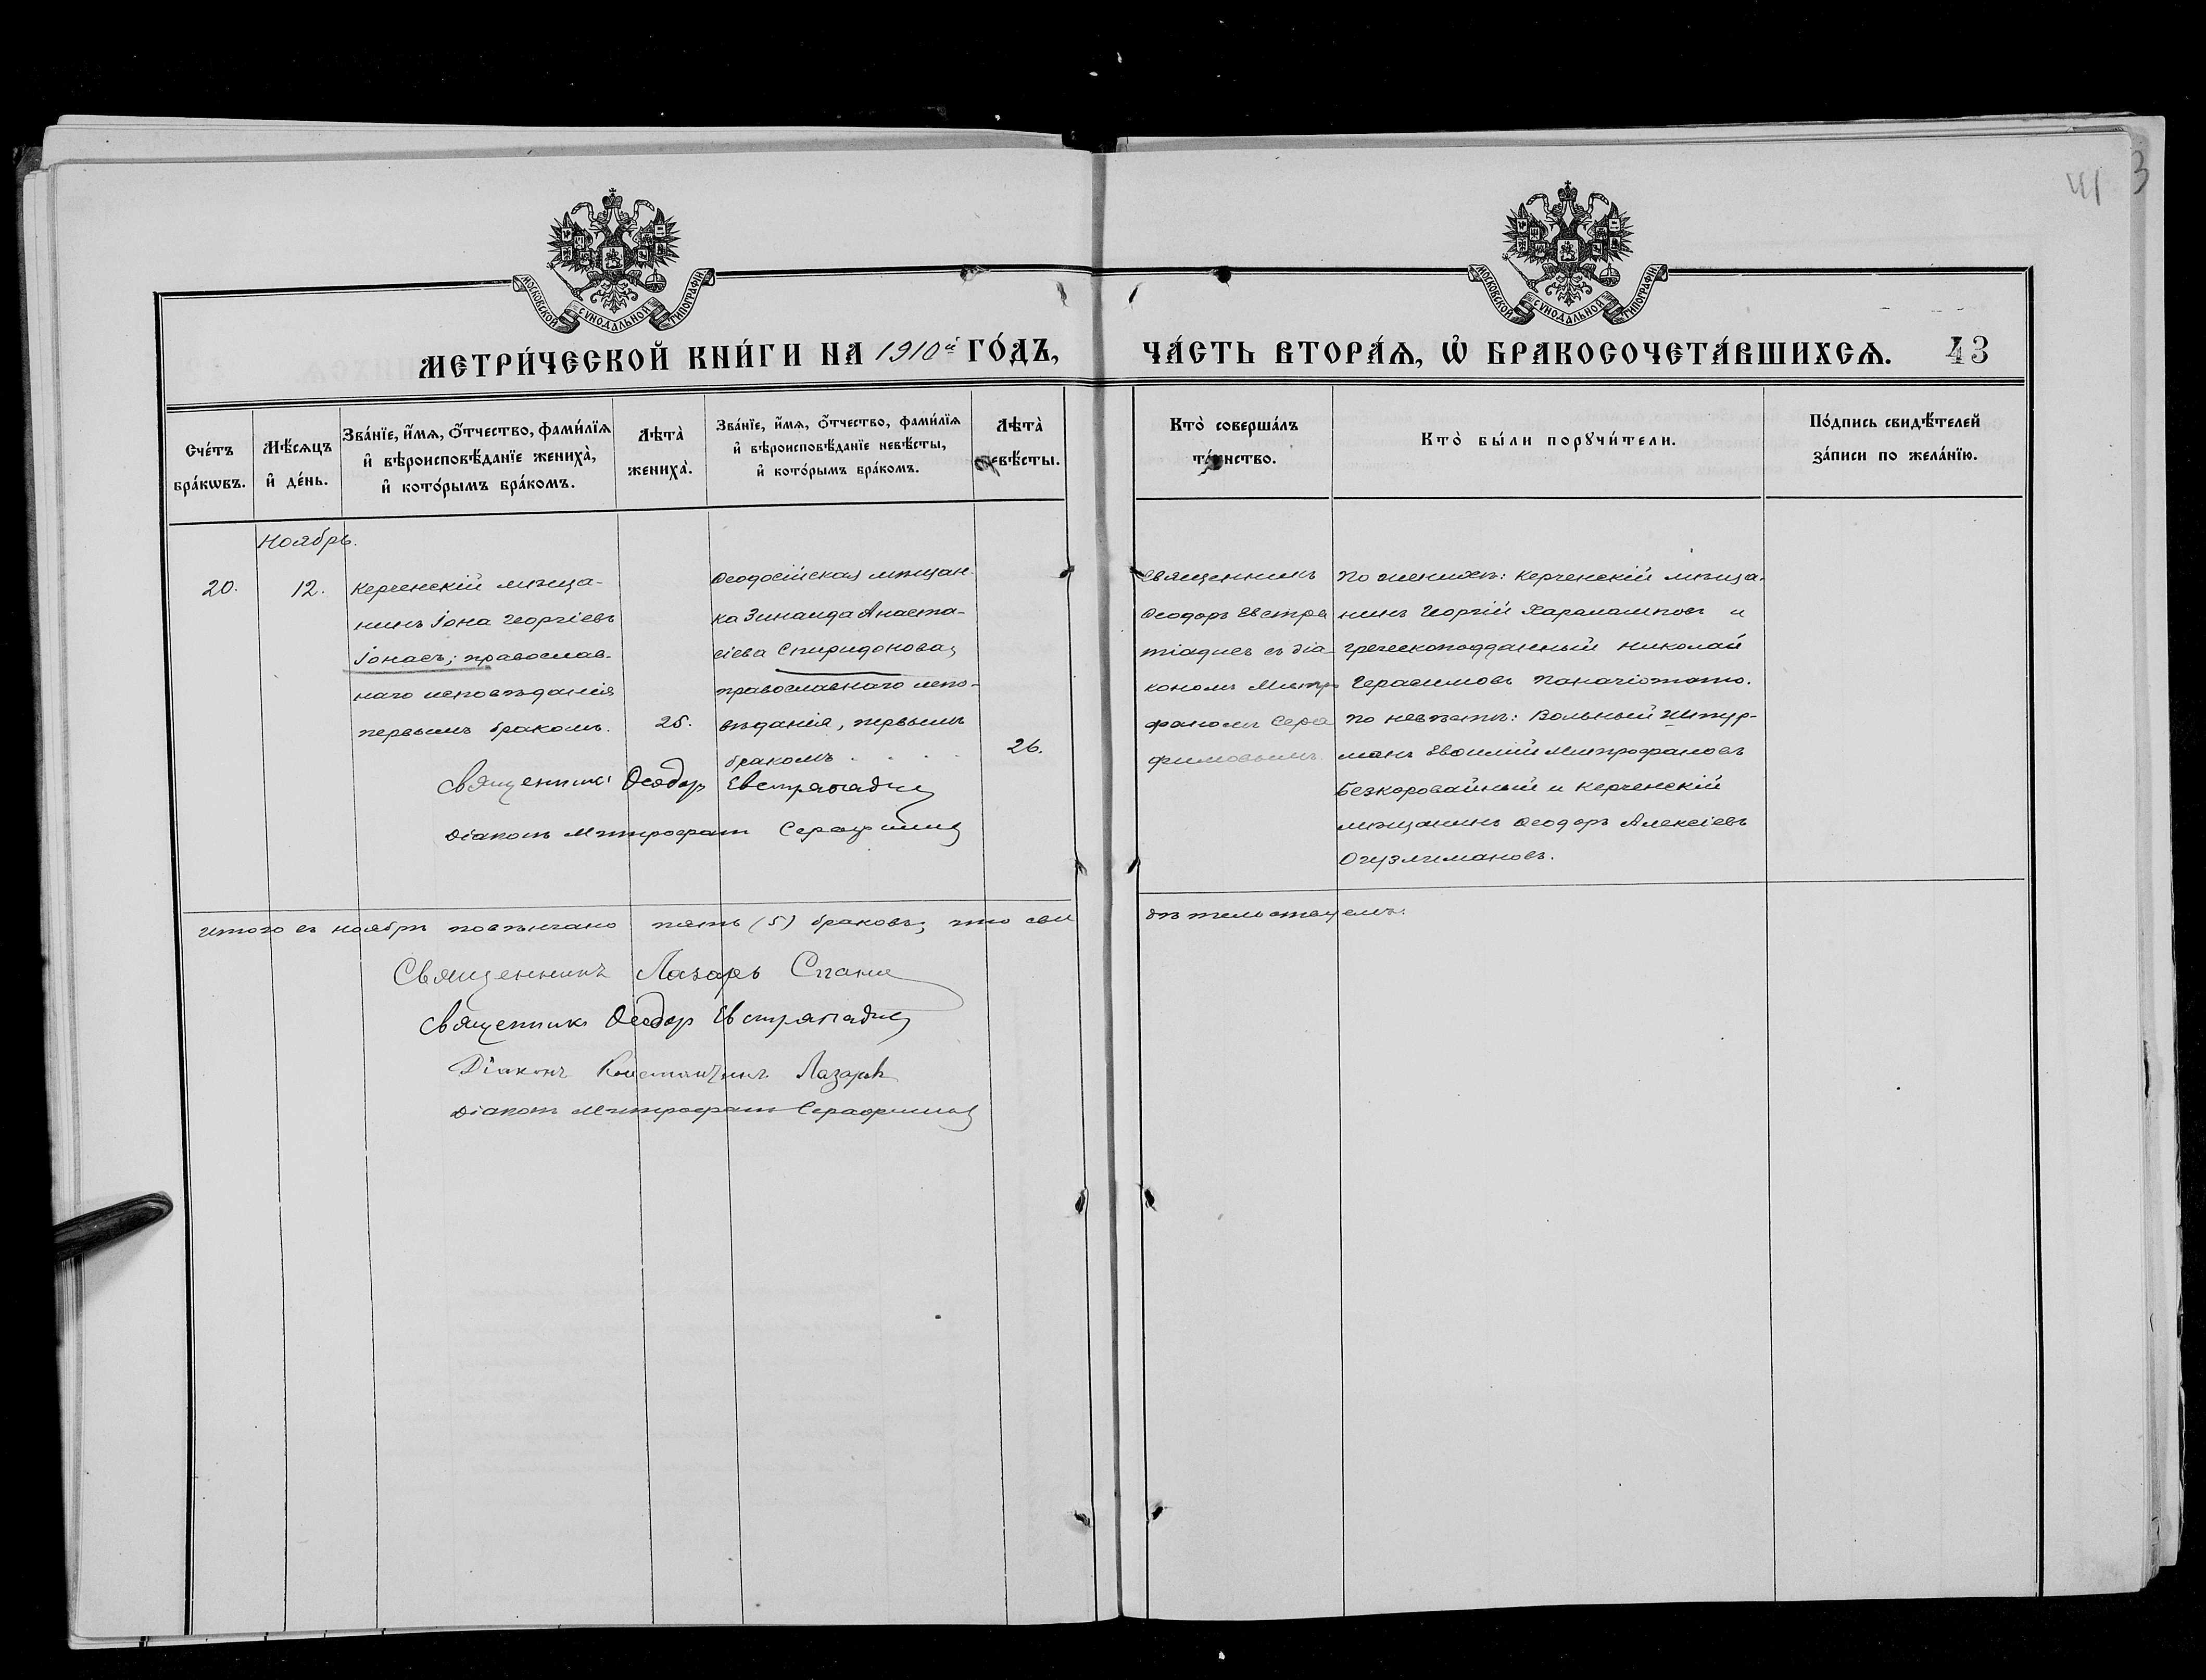 41 3
МОСКОВСКОЙ СѴНОДАЛЬНОЙ ТИПОГРАФІИ
МОСКОВСКОЙ СѴНОДАЛЬНОЙ ТИПОГРАФІИ
МЕТРИ́ЧЕСКОЙ КНИ́ГИ НА 1910й ГО́ДЪ,
ЧА́СТЬ ВТОРА́Ѧ, Ѡ҆ БРАКОСОЧЕТА́ВШИХСѦ. 43
Сче́тъ бра́кѡвъ.
Мѣ́сѧцъ и҆ де́нь.
Зва́нїе, и҆́мѧ, ѻ҆́тчество, фами́лїѧ и҆ вѣроисповѣ́данїе жениха̀, и҆ кото́рымъ бра́комъ.
Лѣта̀ жениха̀.
Зва́нїе, и҆́мѧ, ѻ҆́тчество, фами́лїѧ и҆ вѣроисповѣ́данїе невѣ́сты, и҆ кото́рымъ бра́комъ.
Лѣта̀ невѣ́сты.
Кто̀ соверша́лъ та́инство.
Кто̀ бы́ли порꙋчи́тели.
По́дпись свидѣ́телей за́писи по жела́нїю.
Ноябрь.
20.
12.
Керченскій мѣща-
нинъ Іона Георгіевъ
Іонасъ; православ-
наго исповѣданія
первымъ бракомъ.
25.
Ѳеодосійская мѣщан-
ка Зинаида Анаста-
сіева Спиридонова,
православнаго испо-
вѣданія, первымъ
бракомъ . . . .
26.
Священникъ
Ѳеодоръ Евстра
тіадисъ съ діа-
кономъ Митро
фаномъ Сера
фимовымъ.
По женихѣ: Керченскій мѣща-
нинъ Георгій Харалампов и
греческоподданный Николай
Герасимовъ Панагіотато.
По невѣстѣ: Вольный Штур-
манъ Евѳимій Митрофановъ
Безкоровайный и Керченскій
мѣщанинъ Ѳеодоръ Алексіевъ
Огузлимановъ.
Священникъ Ѳеодоръ Евстратіадис
Діаконъ Митрофанъ Серафимов
Итого въ ноябрѣ повѣнчано пять (5) браковъ, что сви
дѣтельствуемъ:
Священникъ Лазарь Спаи
Священникъ Ѳеодоръ Евстратіадис
Діаконъ Константинъ Лазаревъ
Діаконъ Митрофанъ Серафимов